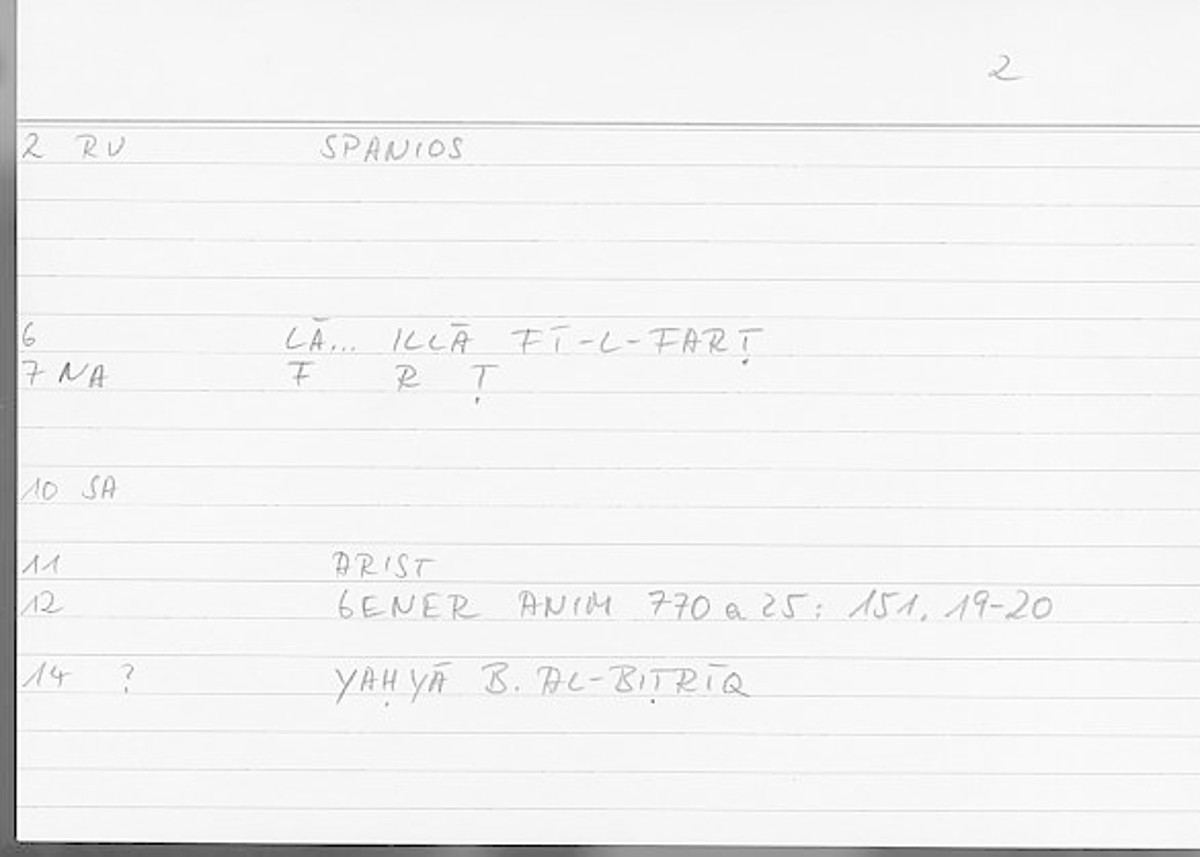 2
2 RU SPANIOS
6 LĀ... ILLĀ FĪ-L-FARṬ
7 NA F R Ṭ
10 SA
11 ARIST
12 GENER ANIM 770 a 25: 151, 19-20
14 ? YAḤYĀ B. AL-BIṬRĪQ